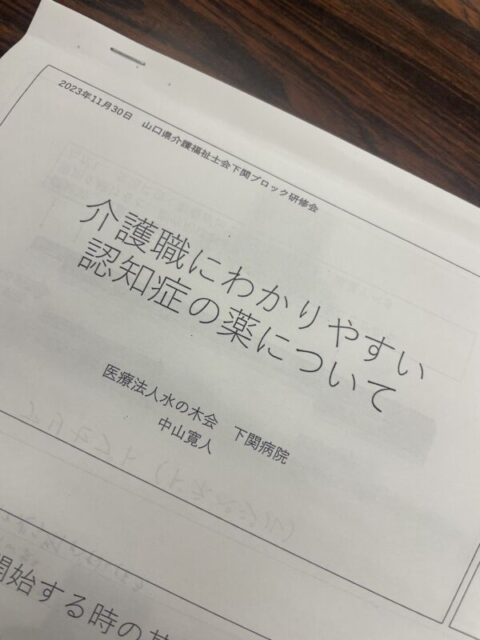 2023年11月30日 山口県介護福祉士会下関ブロック研修会
介護職にわかりやすい
認知症の薬について
医療法人水の木会 下関病院
中山寛人
開始する時の